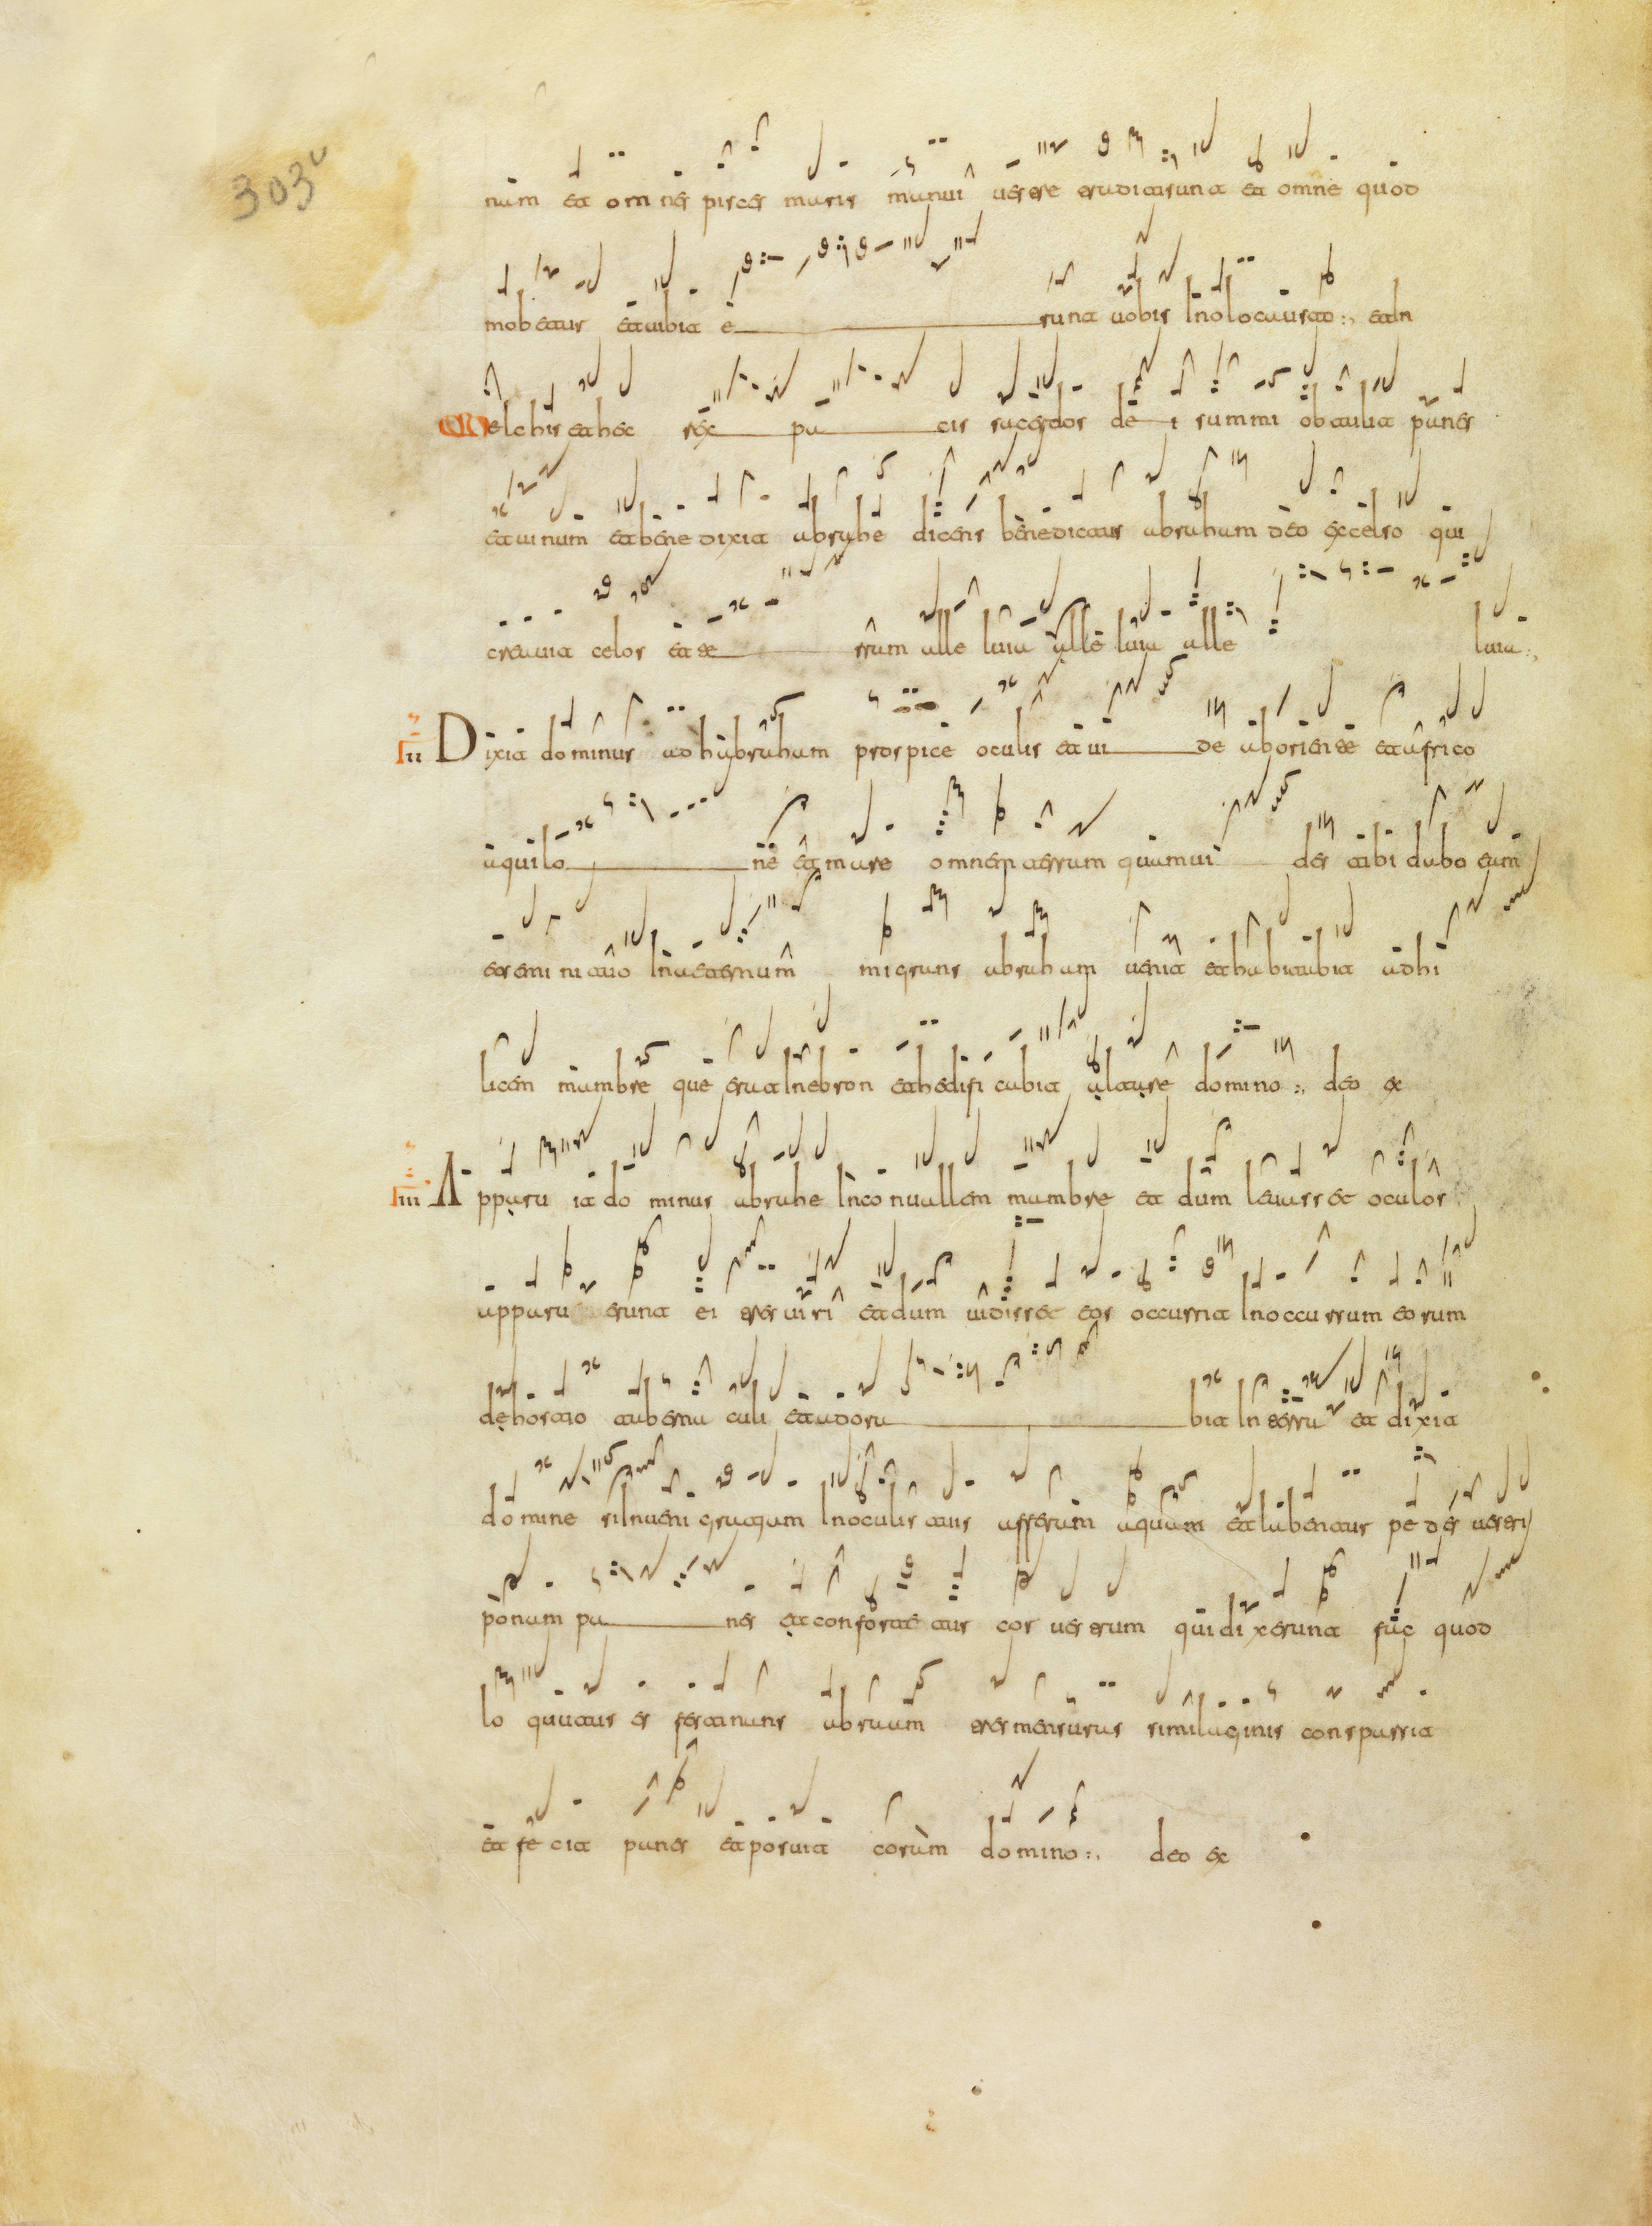 303v
num et omnes pisces maris manui uestre tradita sunt et omne quod
mobetur et uibit e runt uobis In olocausto :, et In
Melchisethec rex pa cis sacerdos de i summi obtulit panes
et uinum et benedixit abrahe dicens benedictus abraham deo excelso qui
creauit celos et te rram alle luia alle luia alle luia :,
III Dixit dominus ad habraham prospice oculis et ui de ab oriente et africo
aquilo ne et mare omnem terram quam ui des tibi dabo eam
et semini tuo In aeternum migrans abraham uenit et habitabit ad hi
licem mambre que erat In ebron et hedificabit altare domino :, deo ex
IIII Apparuit dominus abrahe In conuallem mambre et dum leuasset oculos
apparuerunt ei tres uiri et dum uidisset eos occurrit In occursum eorum
de hostio tabernaculi et adora bit In terra et dixit
domine si Inueni gratiam In oculis tuis afferam aquam et labentur pedes uestri
ponam pa nes et confortetur cor uestrum qui dixerunt fac quod
loquutus es festinans abraam tres mensuras similaginis conspassit
et fecit panes et posuit coram domino :, deo ex